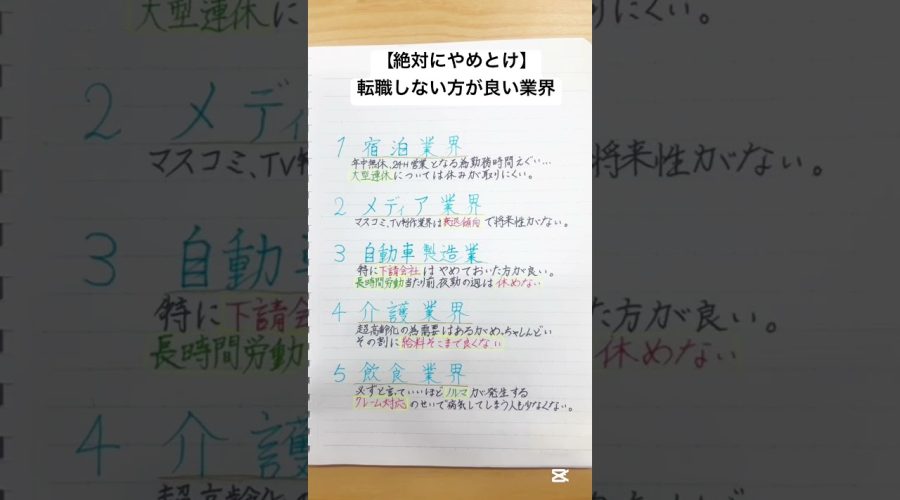 【絶対にやめとけ】
転職しない方が良い業界
1 宿泊業界
年中無休、24H営業となる為勤務時間えぐい…
大型連休については休みが取りにくい。
2 メディア業界
マスコミ、TV制作業界は衰退傾向で将来性がない。
3 自動車製造業
特に下請会社はやめておいた方が良い。
長時間労働当たり前、夜勤の週は休めない
4 介護業界
超高齢化の為需要はあるがめっちゃしんどい
その割に給料そこまで良くない
5 飲食業界
必ずと言っていいほどノルマが発生する
クレーム対応のせいで病気してしまう人も少なくない。
大型連休に
りにくい。
2 メディ
マスコミ、TV
将来性がない。
3 自動車
特に下請会
方が良い。
長時間労働
休めない
4 介護
超高齢化の